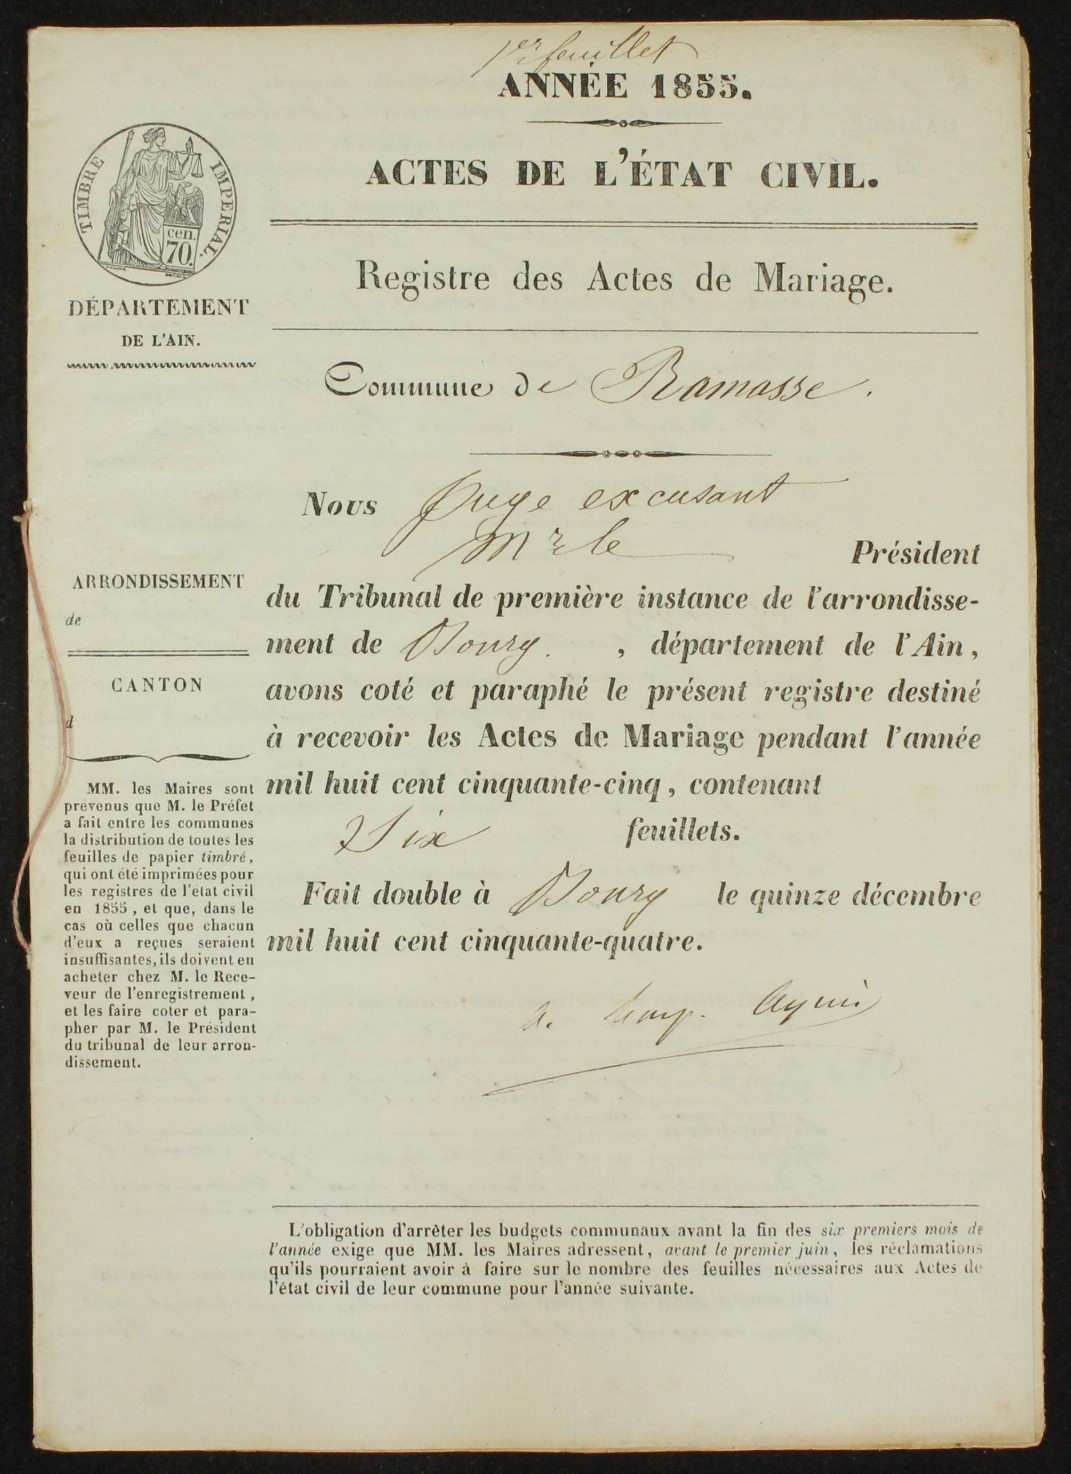 1er feuillet
ANNÉE 1855.
ACTES DE L'ÉTAT CIVIL.
TIMBRE IMPERIAL.
cen.
70.
Registre des Actes de Mariage.
DÉPARTEMENT
DE L'AIN.
Commune de Ramasse.
Nous Juge excusant
Mr le Président
du Tribunal de première instance de l'arrondisse-
ment de Bourg. , département de l'Ain,
avons coté et paraphé le présent registre destiné
à recevoir les Actes de Mariage pendant l'année
mil huit cent cinquante-cinq, contenant
Six feuillets.
Fait double à Bourg le quinze décembre
mil huit cent cinquante-quatre.
ARRONDISSEMENT
de
CANTON
d
MM. les Maires sont
prévenus que M. le Préfet
a fait entre les communes
la distribution de toutes les
feuilles de papier timbré,
qui ont été imprimées pour
les registres de l'état civil
en 1855, et que, dans le
cas où celles que chacun
d'eux a reçues seraient
insuffisantes, ils doivent en
acheter chez M. le Rece-
veur de l'enregistrement,
et les faire coter et para-
pher par M. le Président
du tribunal de leur arron-
dissement.
L'obligation d'arrêter les budgets communaux avant la fin des six premiers mois de
l'année exige que MM. les Maires adressent, avant le premier juin, les réclamations
qu'ils pourraient avoir à faire sur le nombre des feuilles nécessaires aux Actes de
l'état civil de leur commune pour l'année suivante.